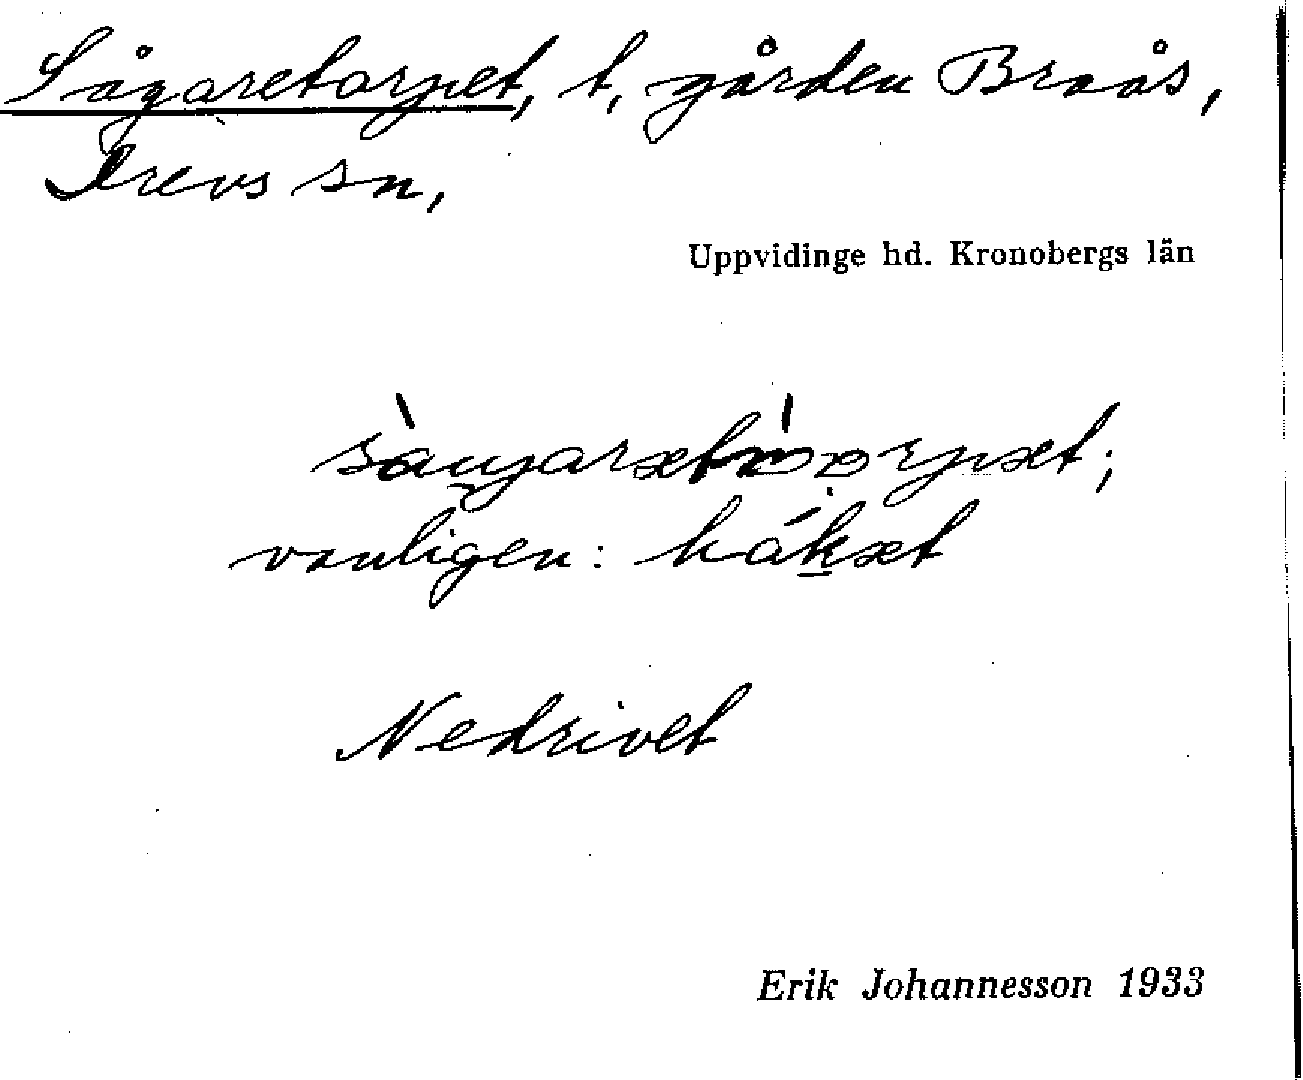 Sågaretorpet, t, gården Braås,
Drevs sn,
Uppvidinge hd. Kronobergs län
vanligen: hákət
Nedrivet
Erik Johannesson 1933